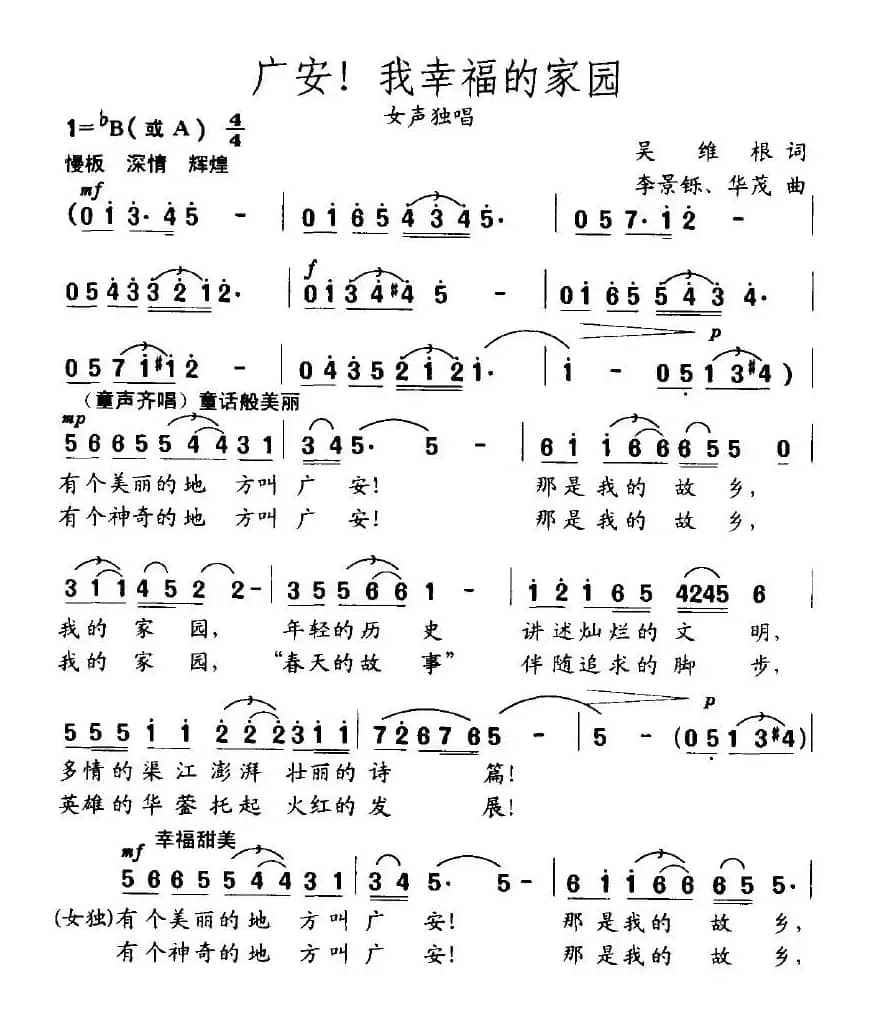 广安！我幸福的家园
女声独唱
1=♭B(或A) 4/4
吴维根词
慢板 深情 辉煌
李景铄、华茂曲
mf
(0 i 3· 4 5 - | 0 i 6 5 4 3 4 5· | 0 5 7· i 2 - |
f
0 5 4 3 3 2 i 2· | 0 i 3 4 #4 5 - | 0 i 6 5 5 4 3 4· |
p
0 5 7 i #i 2 - | 0 4 3 5 2 i 2 i· | i - 0 5 1 3 #4)
(童声齐唱)童话般美丽
mp
5 6 6 5 5 4 4 3 1 | 3 4 5· 5 - | 6 i i 6 6 6 5 5 0
有个美丽的地 方叫广 安! 那是我的故乡,
有个神奇的地 方叫广 安! 那是我的故乡,
3 1 1 4 5 2 2 - | 3 5 5 6 6 1 - | i 2 i 6 5 4245 6 |
我的家园, 年轻的历史 讲述灿烂的文明,
我的家园, “春天的故事” 伴随追求的脚步,
p
5 5 5 i i 2 2 2 3 i i | 7 2 6 7 6 5 - | 5 - (0 5 1 3 #4) |
多情的渠江澎湃 壮丽的诗 篇!
英雄的华蓥托起 火红的发 展!
mf 幸福甜美
5 6 6 5 5 4 4 3 1 | 3 4 5· 5 - | 6 i i 6 6 6 5 5· |
(女独)有个美丽的地 方叫广 安! 那是我的故乡,
有个神奇的地 方叫广 安! 那是我的故乡,